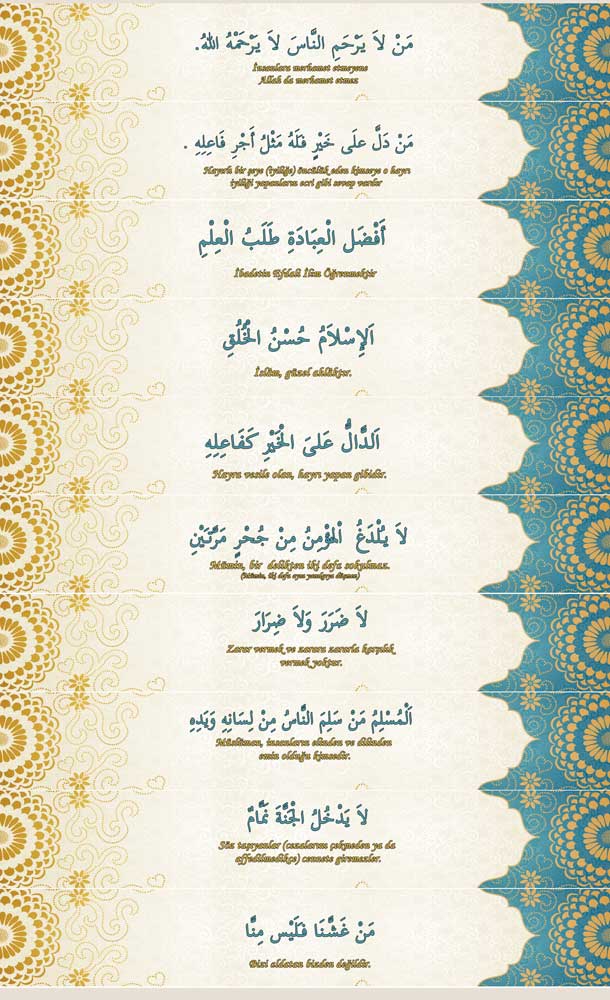 مَنْ لاَ يَرْحَمِ النَّاسَ لاَ يَرْحَمْهُ اللهُ.
İnsanlara merhamet etmeyene
Allah da merhamet etmez
مَنْ دَلَّ علَى خَيْرٍ فَلَهُ مَثْلُ أَجْرِ فَاعِلِهِ .
Hayırlı bir şeye (iyiliğe) öncülük eden kimseye o hayrı
iyiliği yapanların ecri gibi sevap vardır
أَفْضَل الْعِبَادَةِ طَلَبُ الْعِلْمِ
İbadetin Efdali İlim Öğrenmektir
اَلإِسْلاَمُ حُسْنُ الخُلُقِ
İslâm, güzel ahlâktır.
اَلدَّالُّ عَلىَ الْخَيْرِ كَفَاعِلِهِ
Hayra vesile olan, hayrı yapan gibidir.
لاَ يُلْدَغُ اْلمُؤْمِنُ مِنْ جُحْرٍ مَرَّتَيْنِ
Mümin, bir delikten iki defa sokulmaz.
(Mümin, iki defa aynı yanılgıya düşmez)
لاَ ضَرَرَ وَلاَ ضِرَارَ
Zarar vermek ve zarara zararla karşılık
vermek yoktur.
اَلْمُسْلِمُ مَنْ سَلِمَ النَّاسُ مِنْ لِسَانِهِ وَيَدِهِ
Müslüman, insanların elinden ve dilinden
emin olduğu kimsedir.
لاَ يَدْخُلُ الْجَنَّةَ نَمَّامٌ
Söz taşıyanlar (cezalarını çekmeden ya da
affedilmedikçe) cennete giremezler.
مَنْ غَشَّنَا فَلَيْسَ مِنَّا
Bizi aldatan bizden değildir.